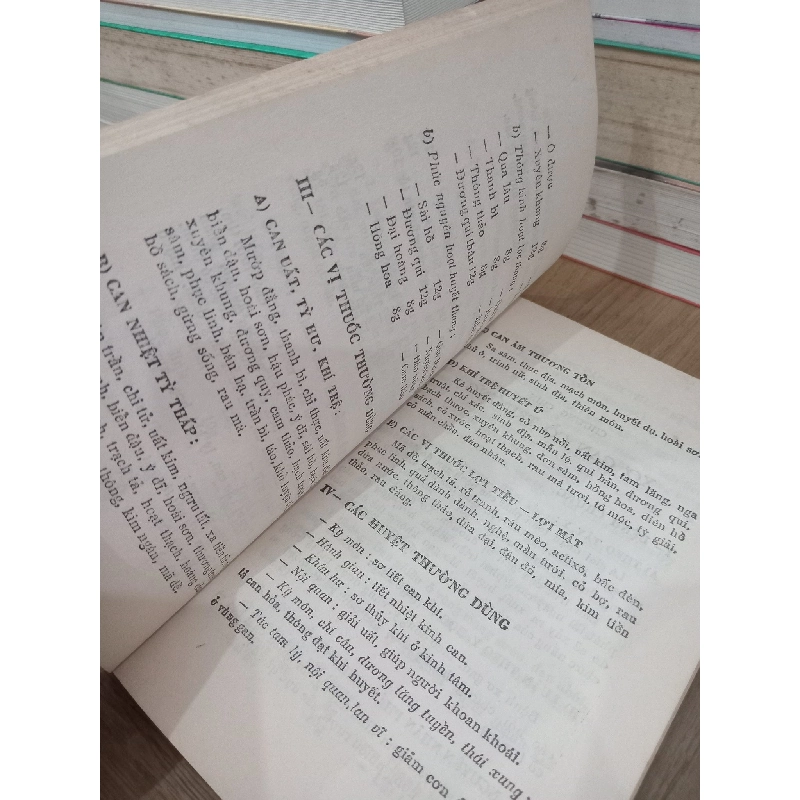 — Ô dược 8g
— Xuyên khung 12g
b) Thông kinh hoạt lạc thang :
— Qua lâu 8g
— Thanh bì 8g
— Thông thảo 6g
— Đương qui thân 12g
b) Phúc nguyên hoạt huyết thang :
— Sài hồ 12g
— Đương qui 12g
— Đại hoàng 8g
— Hồng hoa 8g
III— CÁC VỊ THUỐC THƯỜNG DÙNG
A) CAN UẤT, TỲ HƯ, KHÍ TRỆ:
Mướp đắng, thanh bì, chỉ thực, uất
biển đậu, hoài sơn, hậu phác, ý dĩ, sài
xuyên khung, đương quy, cam thảo, bạch
sâm, phục linh, bán hạ, trần bì, táo,
hồ sách, gừng sống, rau má.
B) CAN NHIỆT TỲ THẤP:
trần, chi tử, uất kim, ngưu tất, xa
biển đậu, ý dĩ, hoài sơn,
trạch tả, hoạt thạch, hoàng
thông, kim ngân, mã đề.
CAN ÂM THƯƠNG TỔN
Sa sâm, thục địa, mạch môn, huyết dụ, hoài sơn
hồ ô, trinh nữ, sinh địa, thiên môn.
KHÍ TRỆ HUYẾT Ứ
Kê huyết đằng, cỏ nhọ nồi, uất kim, tam lăng, nga
truật, chỉ xác, sinh địa, mần lọ, qui bản, đương qui,
bạch thược, xuyên khung, đơn sâm, hồng hoa, diên hồ
sách, tô xước, hoạt thạch, rau má tươi, tô mộc, tỳ giải,
cỏ mần chầu, đào nhân.
E) CÁC VỊ THUỐC LỢI TIỂU — LỢI MẬT
Mã đề, trạch tả, tỏ tranh, rau mèo, actixô, bấc đèn,
phục linh, quả dành dành, nghệ, mần tưới, cỏ bợ, rau
dừa nước, thông thảo, dứa dại, đậu đỏ, mía, kim tiền
thảo, rau đắng.
IV— CÁC HUYỆT THƯỜNG DÙNG
— Kỳ môn : sơ tiết can khí.
— Hành gian : tiết nhiệt kinh can.
— Khâu hư : sơ thủy khí ở kinh tâm.
— Nội quan : giải uất, giúp người khoan khoái.
— Kỳ môn, chi câu, dương lăng tuyền, thái xung
tả can hỏa, thông đạt khí huyết.
— Túc tam lý, nội quan, lan vĩ : giảm cơn
ở vùng gan.